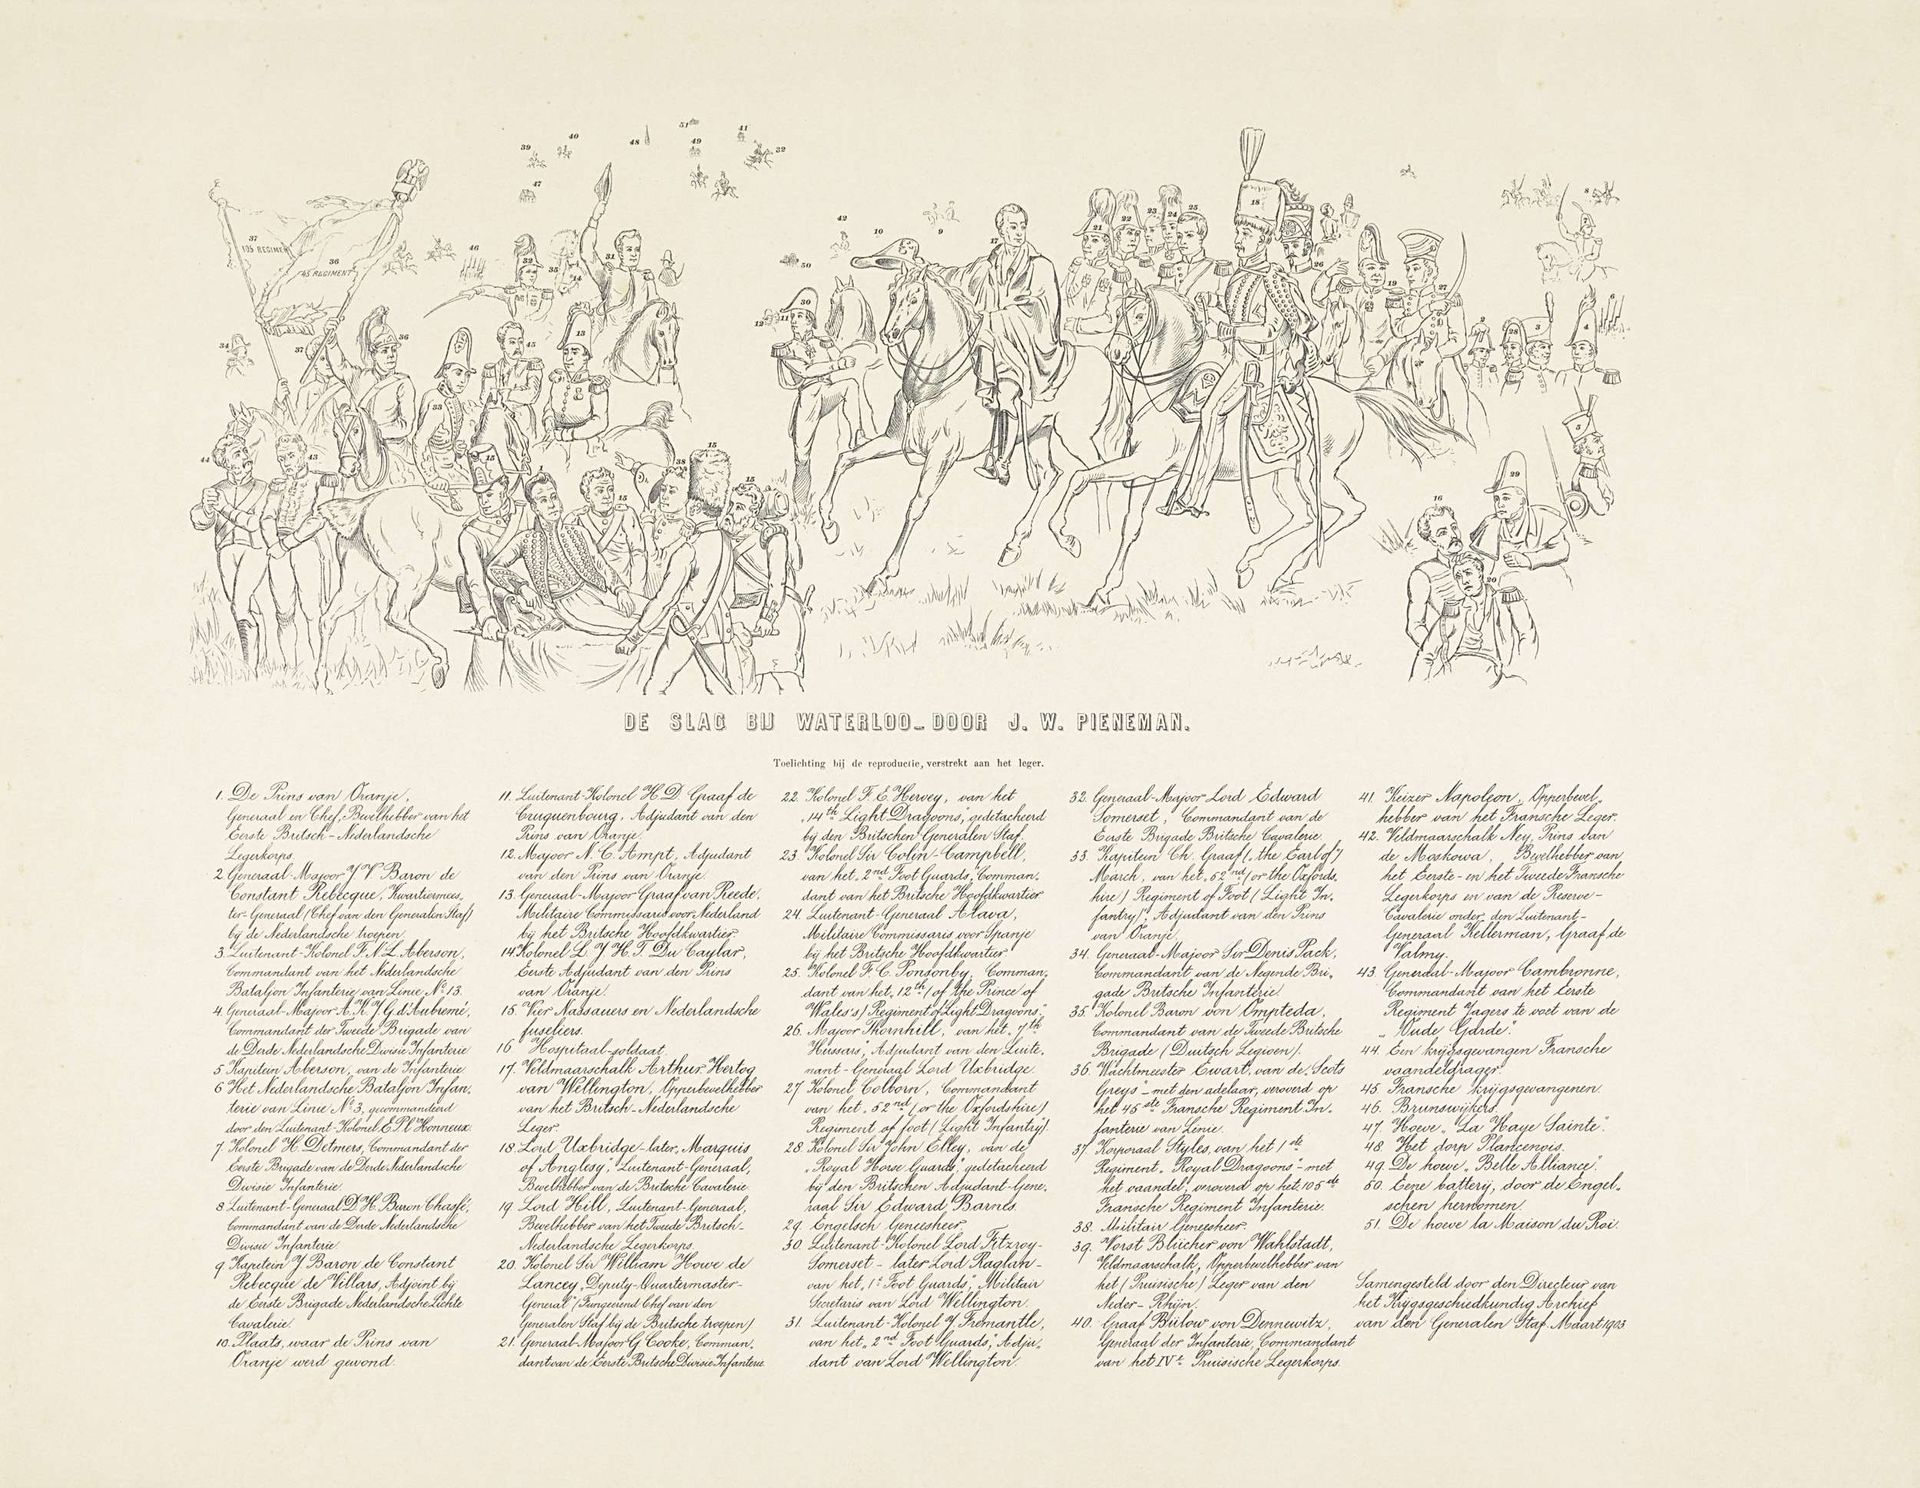 51
41
40
39
48
49
32
47
8
18
37
105 REGIMEN
36
45 REGIMENT
46
32
35
14
31
42
10
9
17
21
22
23
24
25
26
19
27
50
34
37
36
33
45
13
12
11
30
2
28
3
4
6
44
43
15
1
15
38
15
15
16
29
20
DE SLAG BIJ WATERLOO_DOOR J. W. PIENEMAN.
Toelichting bij de reproductie, verstrekt aan het leger.
1. De Prins van Oranje,
Generaal en Chef, Bevelhebber van het
Eerste Britsch-Nederlandsche
Legerkorps.
2. Generaal-Majoor J V Baron de
Constant Rebecque, Kwartiermees-
ter-Generaal (Chef van den Generalen Staf)
bij de Nederlandsche troepen.
3. Luitenant-Kolonel F. N. L. Aberson,
Commandant van het Nederlandsche
Bataljon Infanterie van Linie No 13.
4. Generaal-Majoor A. K. J. G. d'Aubremé,
Commandant der Tweede Brigade van
de Derde Nederlandsche Divisie Infanterie
5 Kapitein Aberson, van de Infanterie
6 Het Nederlandsche Bataljon Infan-
terie van Linie No 3, gecommandeerd
door den Luitenant-Kolonel E. P. V Honneux.
7. Kolonel H. Detmers, Commandant der
Eerste Brigade van de Derde Nederlandsche
Divisie Infanterie.
8. Luitenant-Generaal D. H. Baron Chassé,
Commandant van de Derde Nederlandsche
Divisie Infanterie.
9 Kapitein J Baron de Constant
Rebecque de Villars, Adjoint bij
de Eerste Brigade Nederlandsche Lichte
Cavalerie.
10. Plaats, waar de Prins van
Oranje werd gewond.
11. Luitenant-Kolonel H. D. Graaf de
Cruquenbourg, Adjudant van den
Prins van Oranje.
12. Majoor N. C. Ampt, Adjudant
van den Prins van Oranje.
13. Generaal-Majoor Graaf van Reede,
Militaire Commissaris voor Nederland
bij het Britsche Hoofdkwartier.
14 Kolonel L. J. H. T. Du Caylar,
Eerste Adjudant van den Prins
van Oranje.
15. Vier Nassauers en Nederlandsche
fuseliers.
16 Hospitaal-soldaat.
17. Veldmaarschalk Arthur Hertog
van Wellington, Opperbevelhebber
van het Britsch-Nederlandsche
Leger.
18. Lord Uxbridge-later „Marquis
of Anglesy", Luitenant-Generaal,
Bevelhebber van de Britsche Cavalerie.
19. Lord Hill, Luitenant-Generaal,
Bevelhebber van het Tweede Britsch-
Nederlandsche Legerkorps.
20. Kolonel Sir William Howe de
Lancey, „Deputy-Quartermaster-
General" (Fungeerend Chef van den
Generalen Staf bij de Britsche troepen)
21. Generaal-Majoor G. Cooke, Comman-
dant van de Eerste Britsche Divisie Infanterie
22. Kolonel F. E. Hervey, van het
„14th Light Dragoons", gedetacheerd
bij den Britschen Generalen Staf.
23. Kolonel Sir Colin-Campbell,
van het „2nd Foot Guards", Comman-
dant van het Britsche Hoofdkwartier
24. Luitenant-Generaal Alava,
Militaire Commissaris voor Spanje
bij het Britsche Hoofdkwartier
25. Kolonel F. C. Ponsonby, Comman-
dant van het „12th (of the Prince of
Wales's) Regiment of Light Dragoons".
26. Majoor Thornhill, van het „7th
Hussars", Adjudant van den Luite-
nant-Generaal Lord Uxbridge.
27 Kolonel Colborn, Commandant
van het „52nd (or the Oxfordshire)
Regiment of foot (Light Infantry)".
28. Kolonel Sir John Elley, van de
„Royal Horse Guards", gedetacheerd
bij den Britschen Adjudant-Gene-
raal Sir Edward Barnes.
29. Engelsch Geneesheer.
30. Luitenant-Kolonel Lord Fitzroy-
Somerset - later Lord Raglan -
van het „1e Foot Guards", Militair
Secretaris van Lord Wellington.
31. Luitenant-Kolonel J. Fremantle,
van het „2nd Foot Guards", Adju-
dant van Lord Wellington.
32. Generaal-Majoor Lord Edward
Somerset, Commandant van de
Eerste Brigade Britsche Cavalerie.
33. Kapitein Ch. Graaf (the Earl of)
March, van het „52nd (or the Oxfords-
hire) Regiment of Foot (Light In-
fantry)", Adjudant van den Prins
van Oranje.
34. Generaal-Majoor Sir Denis Pack,
Commandant van de Negende Bri-
gade Britsche Infanterie.
35. Kolonel Baron von Ompteda,
Commandant van de Tweede Britsche
Brigade (Duitsch Legioen).
36. Wachtmeester Ewart, van de „Scots
Greys"-met den adelaar, veroverd op
het 45ste Fransche Regiment In-
fanterie van Linie.
37. Korporaal Styles van het 1ste
Regiment „Royal Dragoons"-met
het vaandel, veroverd op het 105de
Fransche Regiment Infanterie.
38. Militair Geneesheer.
39. Vorst Blücher von Wahlstadt,
Veldmaarschalk, Opperbevelhebber van
het (Pruisische) Leger van den
Neder-Rhijn.
40. Graaf Bülow von Dennewitz,
Generaal der Infanterie, Commandant
van het IVe Pruisische Legerkorps.
41. Keizer Napoleon, Opperbevel-
hebber van het Fransche Leger.
42. Veldmaarschalk Ney, Prins van
de Moskowa, Bevelhebber van
het Eerste- en het Tweede Fransche
Legerkorps en van de Reserve-
Cavalerie onder den Luitenant-
Generaal Kellerman, Graaf de
Valmy.
43. Generaal-Majoor Cambronne,
Commandant van het Eerste
Regiment Jagers te voet van de
„Oude Garde".
44. Een krijgsgevangen Fransche
vaandeldrager.
45. Fransche krijgsgevangenen.
46. Brunswijkers.
47. Hoeve „La Haye Sainte".
48. Het dorp Plancenois.
49. De hoeve „Belle Alliance".
50. Eene battery, door de Engel-
schen hernomen.
51. De hoeve la Maison du Roi.
Samengesteld door den Directeur van
het Krijgsgeschiedkundig Archief
van den Generalen Staf. Maart 1903